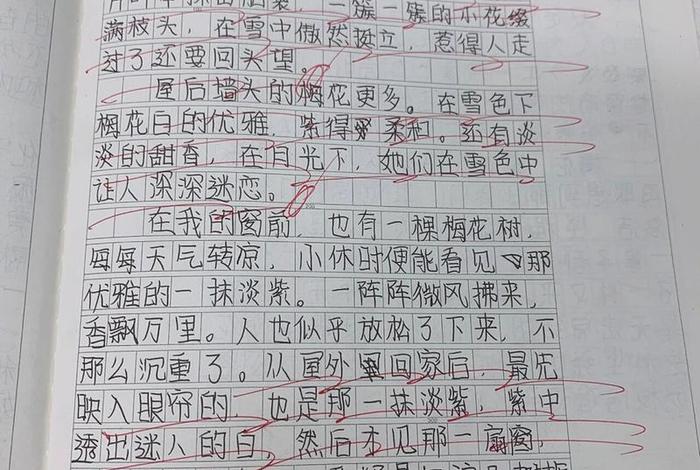 一簇一簇的小花缀
满枝头，在雪中傲然挺立，惹得人走
过了还要回头望。
屋后墙头的梅花更多。在雪色下
梅花白的优雅，紫得柔和。还有淡
淡的甜香，在月光下，她们在雪色中
让人深深迷恋。
在我的窗前，也有一棵梅花树，
每每天气转凉，小休时便能看见那
优雅的一抹淡紫。一阵阵微风拂来，
香飘万里。人也似乎放松了下来，不
那么沉重了。从屋外回家后，最先
映入眼帘的，也是那一抹淡紫，紫中
透出迷人的白。然后才见那一扇窗，